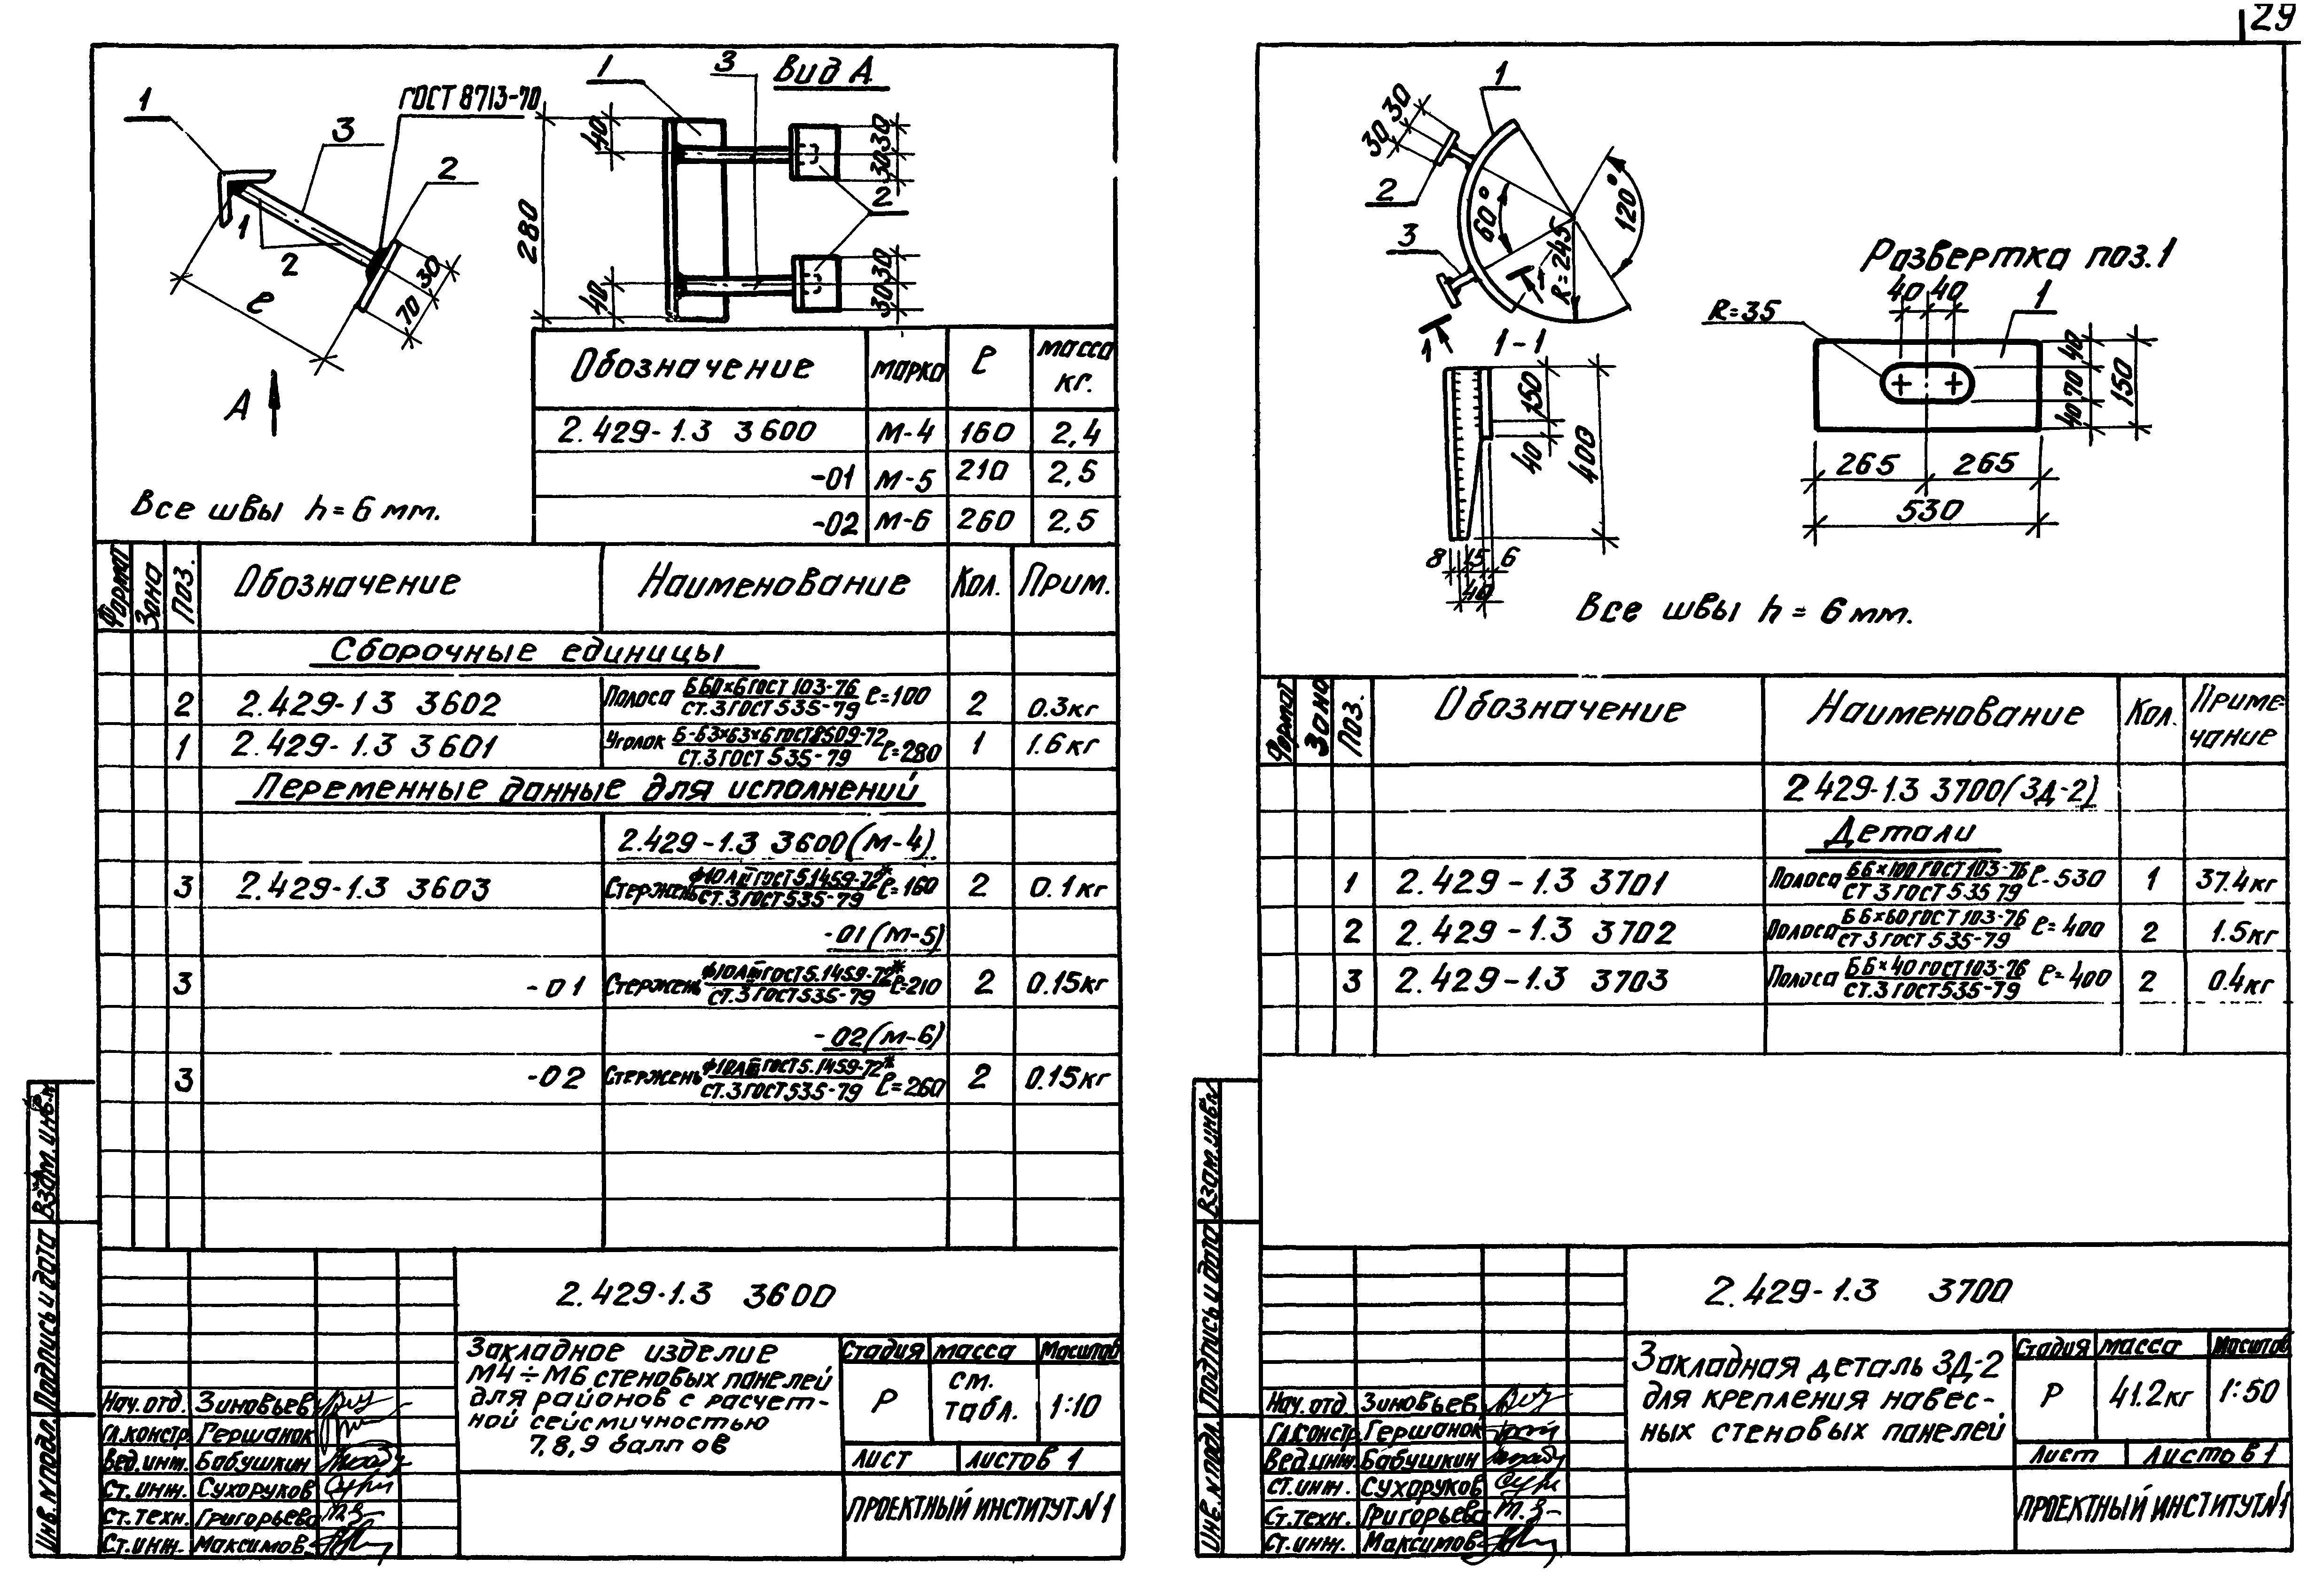 29
1
ГОСТ 8713-70
3
2
1
2
ℓ
30
70
А
Все швы h=6 мм.
Вид А
1
3
40
280
40
30
30
2
30
30
Обозначение марка ℓ масса кг.
2.429-1.3 3600 М-4 160 2,4
-01 М-5 210 2,5
-02 М-6 260 2,5
Формат Зона Поз. Обозначение Наименование Кол. Прим.
Сборочные единицы
2 2.429-1 3 3602 Полоса Б 60×6 ГОСТ 103-76 Ст.3 ГОСТ 535-79 ℓ=100 2 0.3кг
1 2.429-1.3 3601 Уголок Б-63×63×6 ГОСТ 8509-72 Ст.3 ГОСТ 535-79 ℓ=280 1 1.6кг
Переменные данные для исполнений
2.429-1.3 3600(М-4)
3 2.429-1.3 3603 Стержень ф10АIII ГОСТ 5.1459-72* Ст.3 ГОСТ 535-79 ℓ=160 2 0.1кг
-01(М-5)
3 -01 Стержень ф10АIII ГОСТ 5.1459-72* Ст.3 ГОСТ 535-79 ℓ=210 2 0.15кг
-02(М-6)
3 -02 Стержень ф10АIII ГОСТ 5.1459-72* Ст.3 ГОСТ 535-79 ℓ=260 2 0.15кг
Инв.№подл. Подпись и дата Взам.инв.№
2.429-1.3 3600
Закладное изделие
М4÷М6 стеновых панелей
для районов с расчет-
ной сейсмичностью
7,8,9 баллов
Стадия масса Масштаб
Р см. табл. 1:10
Лист Листов 1
ПРОЕКТНЫЙ ИНСТИТУТ №1
Нач.отд. Зиновьев
Гл.констр. Гершанок
Вед.инж. Бабушкин
Ст.инж. Сухоруков
Ст.техн. Григорьева
Ст.инж. Максимов
1
30 30
2
3
60°
120°
R=245
1
1
1-1
150
40
400
8 15 6
40
Все швы h=6 мм.
Развертка поз.1
40 40
1
R=35
40
70
40
150
265 265
530
Формат Зона Поз. Обозначение Наименование Кол. Приме-
чание
2 429-1.3 3700(ЗД-2)
Детали
1 2.429-1.3 3701 Полоса Б6×100 ГОСТ 103-76 Ст.3 ГОСТ 535 79 ℓ-530 1 37.4кг
2 2.429-1.3 3702 Полоса Б6×60 ГОСТ 103-76 Ст3 ГОСТ 535-79 ℓ=400 2 1.5кг
3 2.429-1.3 3703 Полоса Б6×40 ГОСТ 103-76 Ст.3 ГОСТ 535-79 ℓ=400 2 0.4кг
Инв.№подл. Подпись и дата Взам.инв.№
2.429-1.3 3700
Закладная деталь ЗД-2
для крепления навес-
ных стеновых панелей
Стадия масса Масштаб
Р 41.2кг 1:50
Лист Листов 1
ПРОЕКТНЫЙ ИНСТИТУТ №1
Нач.отд. Зиновьев
Гл.констр. Гершанок
Вед.инж. Бабушкин
Ст.инж. Сухоруков
Ст.техн. Григорьева
Ст.инж. Максимов